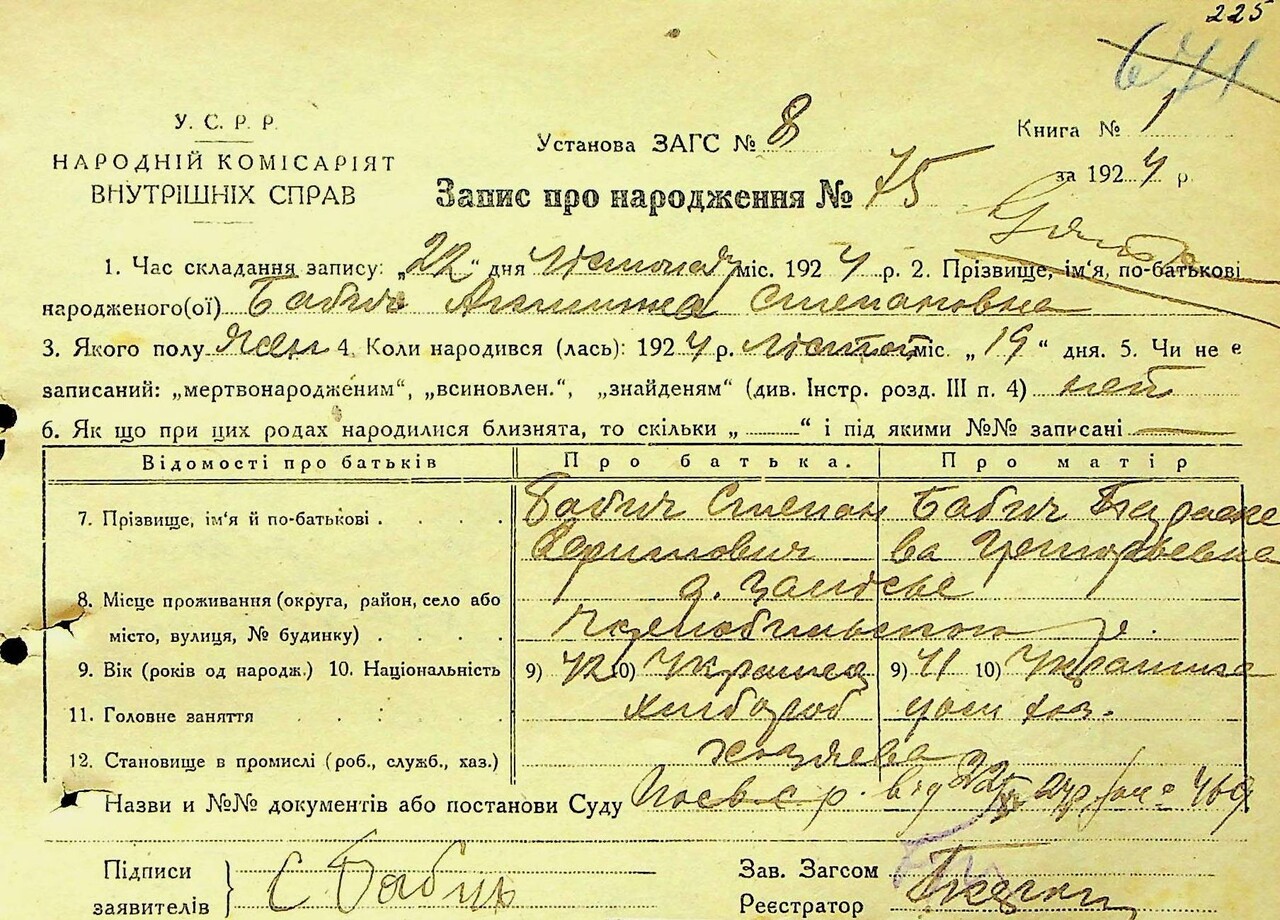 225
671
У. С. Р. Р.
НАРОДНІЙ КОМІСАРІЯТ
ВНУТРІШНІХ СПРАВ
Установа ЗАГС № 8
Книга № 1
за 1924 р.
Запис про народження № 75
1. Час складання запису: „22“ дня міс. 1924 р. 2. Прізвище, ім'я, по-батькові
народженого(ої) Бабич Степановна
3. Якого полу Жен 4. Коли народився (лась): 1924 р. міс. „19“ дня. 5. Чи не є
записаний: „мертвонародженим“, „всиновлен.“, „знайденям“ (див. Інстр. розд. III п. 4) нет
6. Як що при цих родах народилися близнята, то скільки „ “ і під якими №№ записані
Відомості про батьків Про батька. Про матір
7. Прізвище, ім'я й по-батькові . . . . Бабич Степан Бабич Параске
ва Григорьевна
8. Місце проживання (округа, район, село або д. Залісье
місто, вулиця, № будинку) . . . . р.
9. Вік (років од народж.) 10. Національність 9) 42 10) Украинец 9) 41 10) Украинка
11. Головне заняття . . . . хлібороб дом хоз.
12. Становище в промислі (роб., служб., хаз.) хозяева
Назви и №№ документів або постанови Суду від 469
Підписи
заявителів
С Бабич
Зав. Загсом
Реєстратор